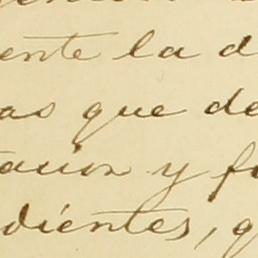 ente la d
as que de
tacion y f
dientes, q